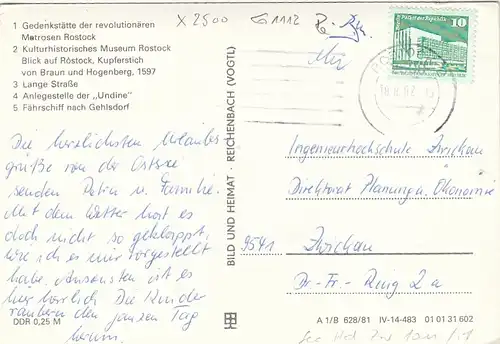 1 Gedenkstätte der revolutionären
Matrosen Rostock
2 Kulturhistorisches Museum Rostock
Blick auf Röstock, Kupferstich
von Braun und Hogenberg, 1597
3 Lange Straße
4 Anlegestelle der „Undine"
5 Fährschiff nach Gehlsdorf
X 2500
G 1112
Palast der Republik
10
Die herzlichsten Urlaubs
grüße von der Ostsee
senden Petra u. Familie.
Mit dem Wetter hat es
doch nicht so geklappt,
wie ich es mir vorgestellt
habe. Ansonsten ist es
hier herrlich. Die Kinder
den ganzen Tag
herum.
DDR 0,25 M
BILD UND HEIMAT · REICHENBACH (VOGTL)
Ingenieurhochschule Zwickau
Direktorat Planung u. Ökonomie
9541 Zwickau
Dr.-Fr.-Ring 2a
A 1/B 628/81 IV-14-483 01 01 31 602